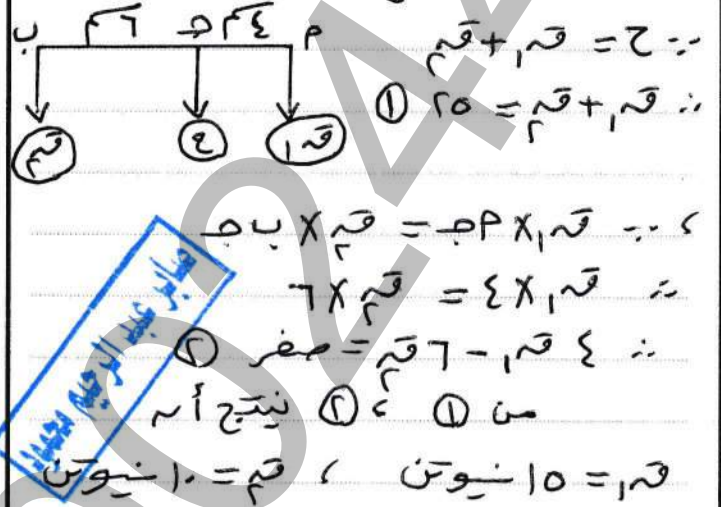 ب ٦م جـ ٤م م
∵ ح = ق١ + ق٢
∴ ق١ + ق٢ = ٢٥ ①
ق٢ ح ق١
، ∵ ق١ × م جـ = ق٢ × ب جـ
∴ ق١ × ٤ = ق٢ × ٦
∴ ٤ ق١ - ٦ ق٢ = صفر ②
من ① ، ② ينتج أن
ق١ = ١٥ نيوتن ، ق٢ = ١٠ نيوتن
صابر عبد الرحيم